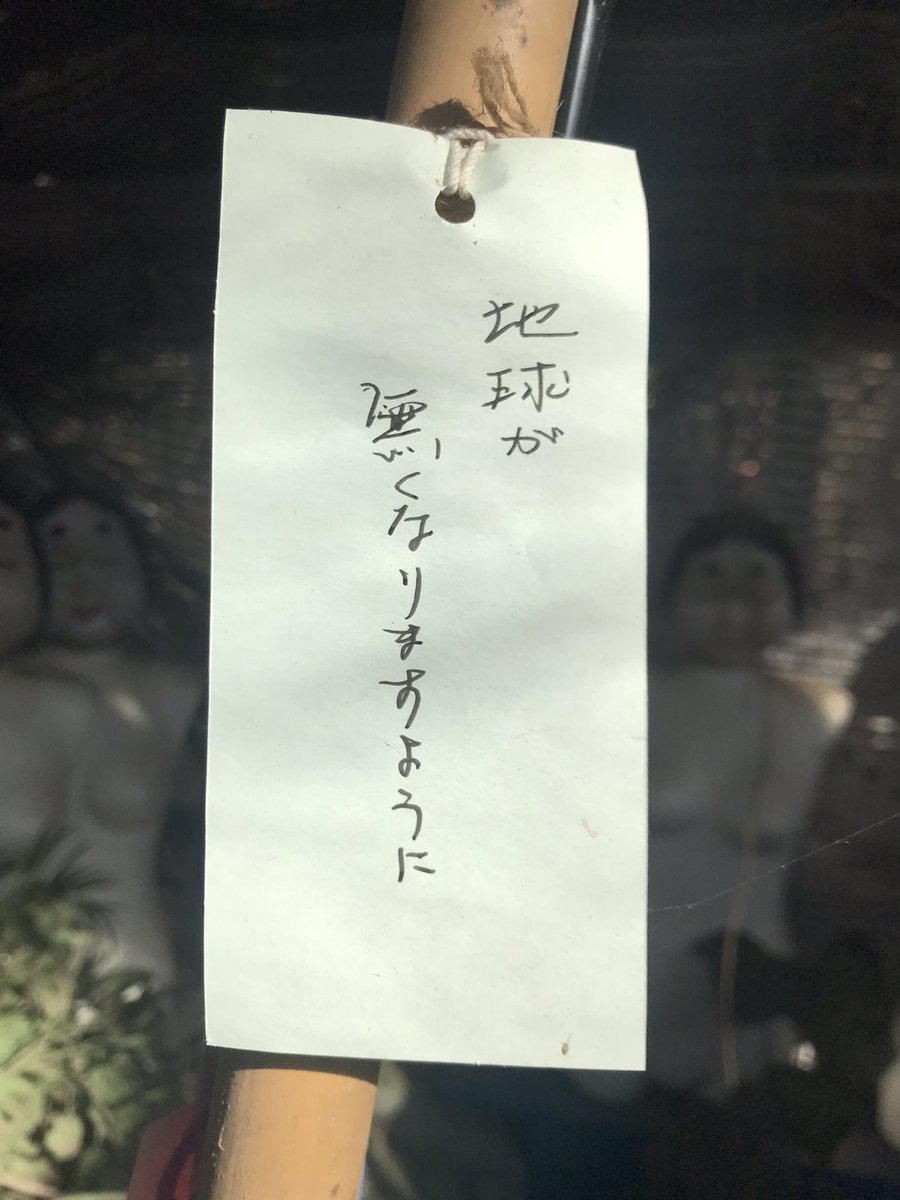 地球が
くなりますように